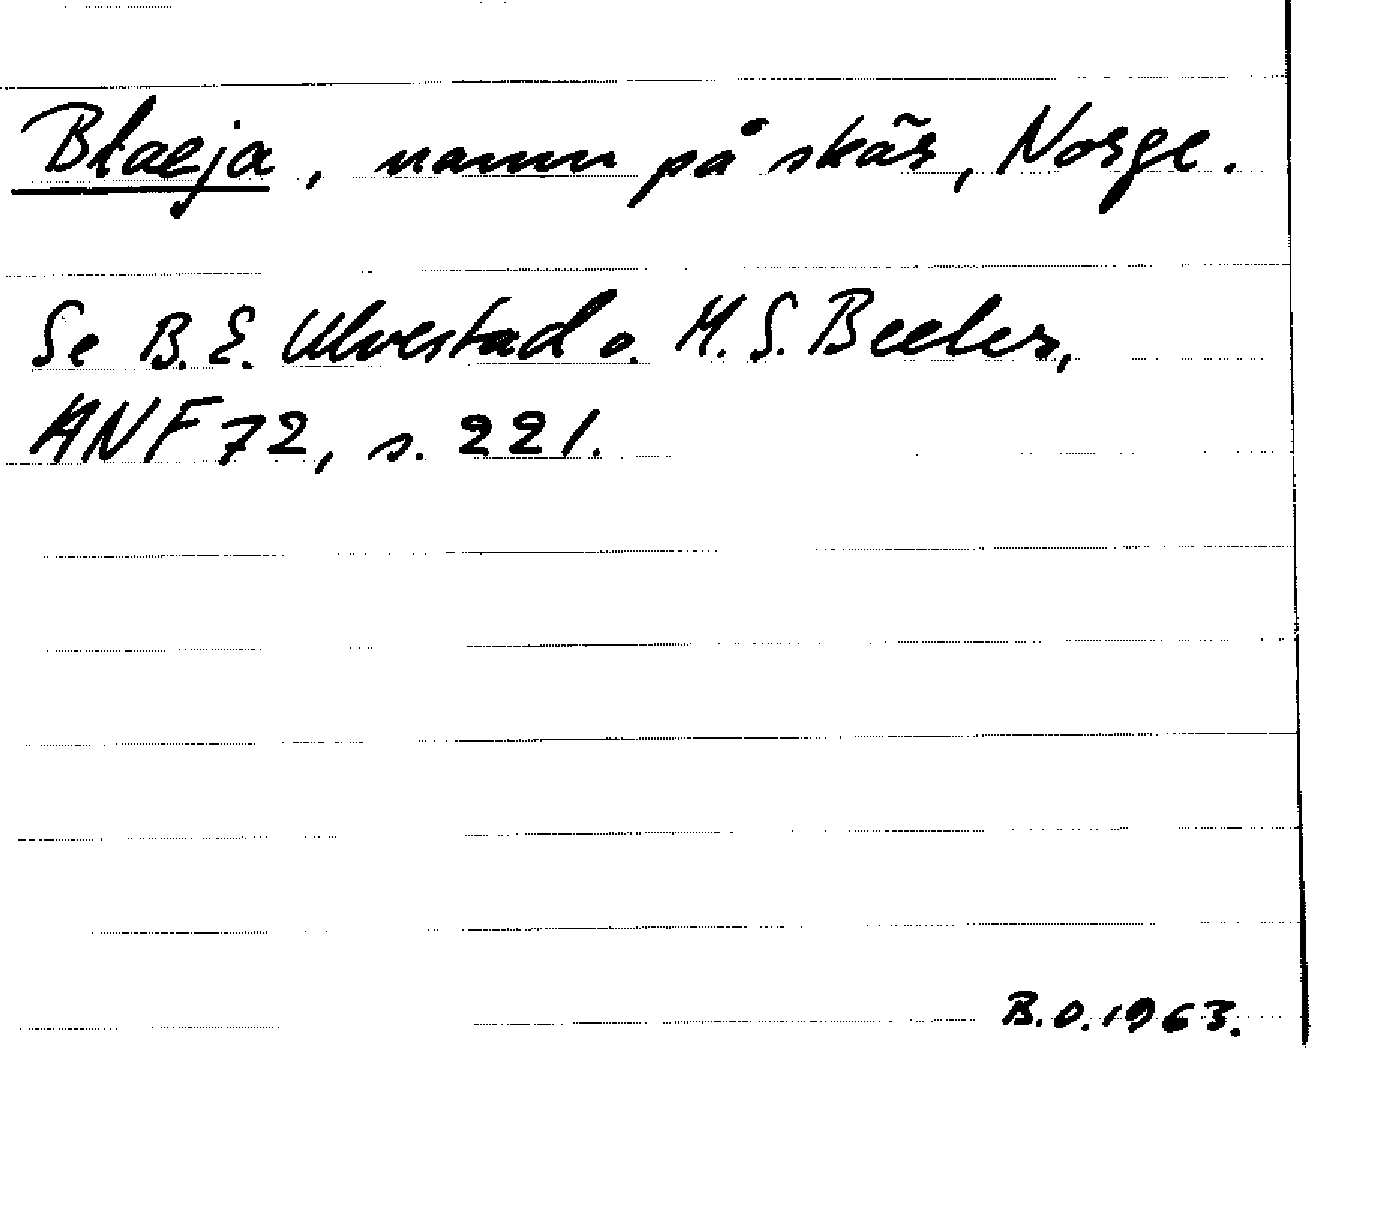 Blaeja, namn på skär, Norge.
Se B. E. Ulvestad o. M. S. Beeler,
ANF 72, s. 221.
B.O. 1963.